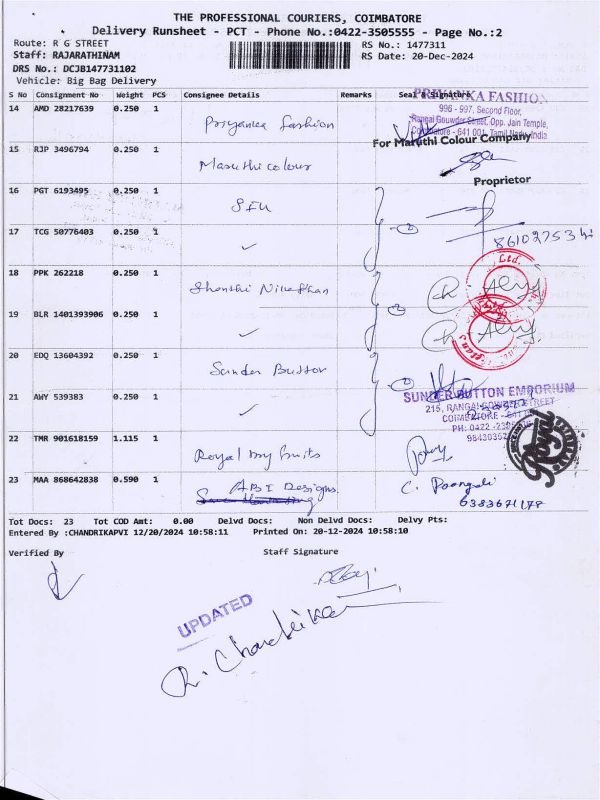 THE PROFESSIONAL COURIERS, COIMBATORE
Delivery Runsheet - PCT - Phone No.:0422-3505555 - Page No.:2
Route: R G STREET
RS No.: 1477311
Staff: RAJARATHINAM
RS Date: 20-Dec-2024
DRS No.: DCJB147731102
Vehicle: Big Bag Delivery
S No Consignment No Weight PCS Consignee Details Remarks Seal & Signature
14 AMD 28217639 0.250 1 Priyanka fashion
PRIYANKA FASHION
996 - 997, Second Floor,
Rangai Gouwder Street, Opp. Jain Temple,
Coimbatore - 641 001, Tamil Nadu, India
15 RJP 3496794 0.250 1 Maruthi colour
For Maruthi Colour Company
Proprietor
16 PGT 6193495 0.250 1
17 TCG 50776403 0.250 1 ✓
18 PPK 262218 0.250 1
Ltd.
19 BLR 1401393906 0.250 1 ✓
20 EDQ 13604392 0.250 1 Sunder Button
21 AWY 539383 0.250 1 ✓
SUNDER BUTTON EMPORIUM
215, RANGAI GOWDER STREET
22 TMR 901618159 1.115 1 Royal my fruits
23 MAA 868642838 0.590 1 ABI Designs.
Tot Docs: 23 Tot COD Amt: 0.00 Delvd Docs: Non Delvd Docs: Delvy Pts:
Entered By :CHANDRIKAPVI 12/20/2024 10:58:11 Printed On: 20-12-2024 10:58:10
Verified By Staff Signature
UPDATED
R. Chandrika